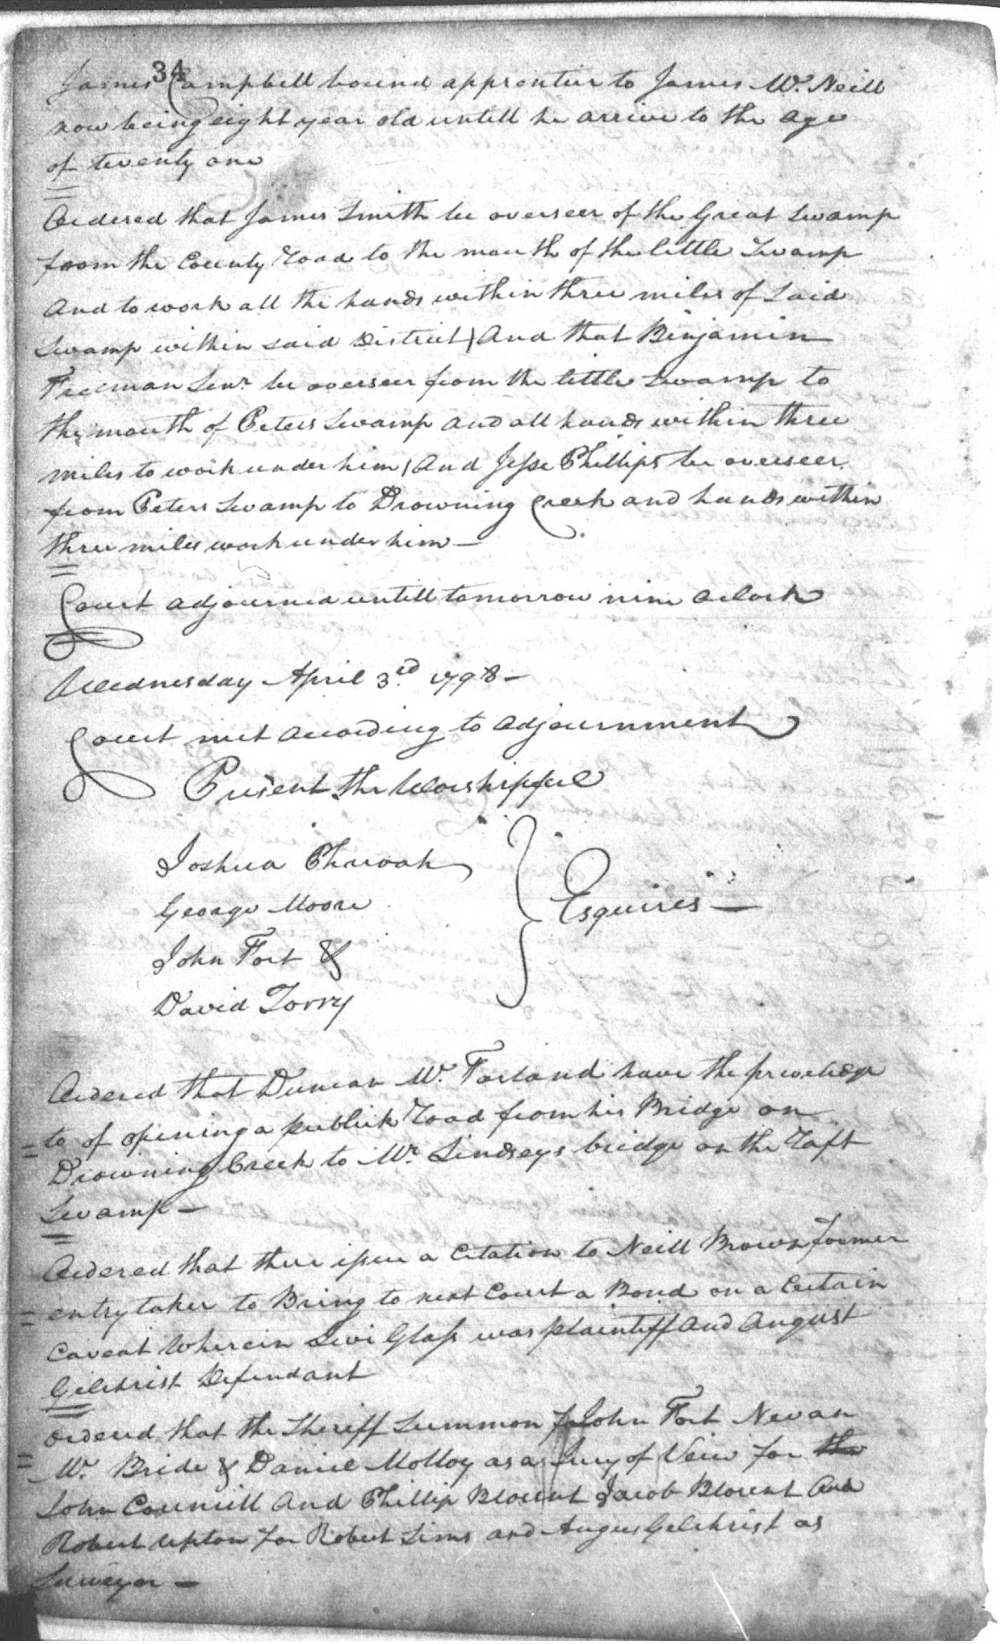 34
James Campbell bound apprentice to James Mc. Neill
now being eight year old untill he arrive to the age
of twenty one
Ordered that James Smith be overseer of the Great Swamp
from the County Road to the mouth of the little Swamp
And to work all the hands within three miles of Said
Swamp within said District, And that Binjamin
Freeman Senr. be overseer from the little Swamp to
the mouth of Peters Swamp and all hands within three
miles to work under him, And Jesse Phillips be overseer
from Peters Swamp to Drowning Creek and hands within
three miles work under him —
Court adjourned untill tomorrow nine oClock
Wednesday April 3rd. 1798 —
Court met according to adjournment
Present the Worshipful
Joshua Pharoah
George Moore
John Fort &
David Torry
Esquires —
Ordered that Duncan Mc. Farland have the priviledge
to of opening a publick Road from his Bridge on
Drowning Creek to Mr. Lindseys bridge on the Raft
Swamp —
Ordered that there issue a Citation to Neill Brown former
entry taker to Bring to next Court a Bond on a Certain
Caveat Wherein Levi Glass was plaintiff and August
Gilchrist Defendant
Ordered that the Sheriff Summon John Fort Nevan
Mc. Bride & Daniel Molloy as a Jury of Veiw for the
John Council And Phillip Blount Jacob Blount And
Robert Upton for Robert Sims and Angus Gilchrist as
Surveyor —